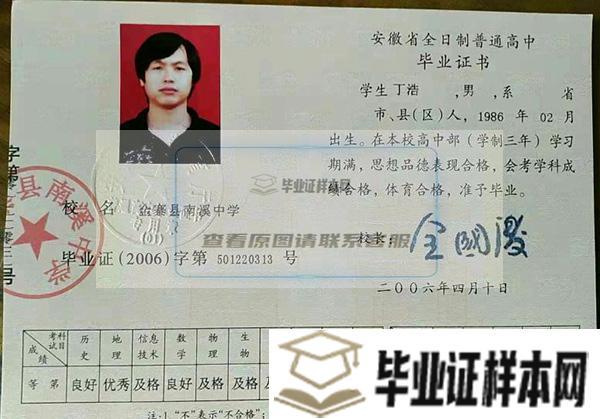 安徽省全日制普通高中
毕业证书
学生丁浩 ,男,系 省
市、县(区)人,1986 年 02月
出生。在本校高中部(学制三年)学习
期满,思想品德表现合格,会考学科成
绩合格,体育合格,准予毕业。
毕业证样本网
校 名 金寨县南溪中学
查看原图请联系客服
校长:
毕业证(2006)字第 501220313 号
二〇〇六年四月十日
县南溪中学
科目 考试 成绩 历史 地理 信息技术 数学 物理 生物
等 第 良好 优秀 及格 良好 及格 及格
毕业证样本网
注:1."不"表示"不合格";